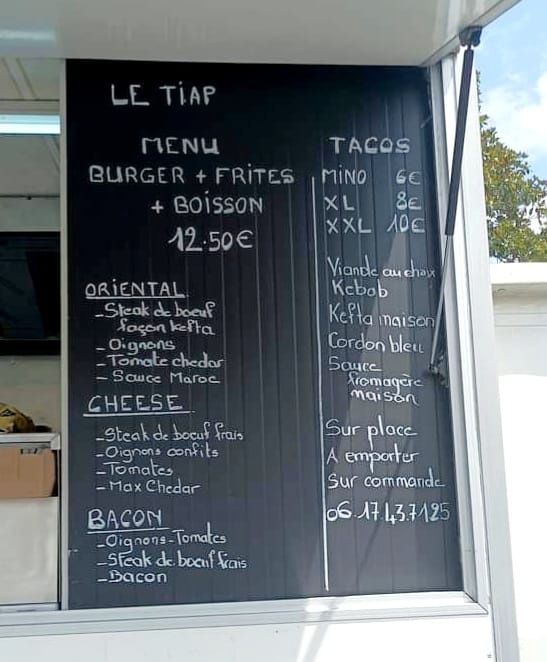 LE TIAP
MENU
BURGER + FRITES
+ BOISSON
12.50€
ORIENTAL
- Steak de boeuf
façon kefta
- Oignons
- Tomate chedar
- Sauce Maroc
CHEESE
- Steak de boeuf frais
- Oignons confits
- Tomates
- Max Chedar
BACON
- Oignons-Tomates
- Steak de boeuf frais
- Bacon
TACOS
MINO 6€
XL 8€
XXL 10€
Viande au choix
Kebab
Kefta maison
Cordon bleu
Sauce
fromagère
maison
Sur place
A emporter
Sur commande
06.17.43.71.25